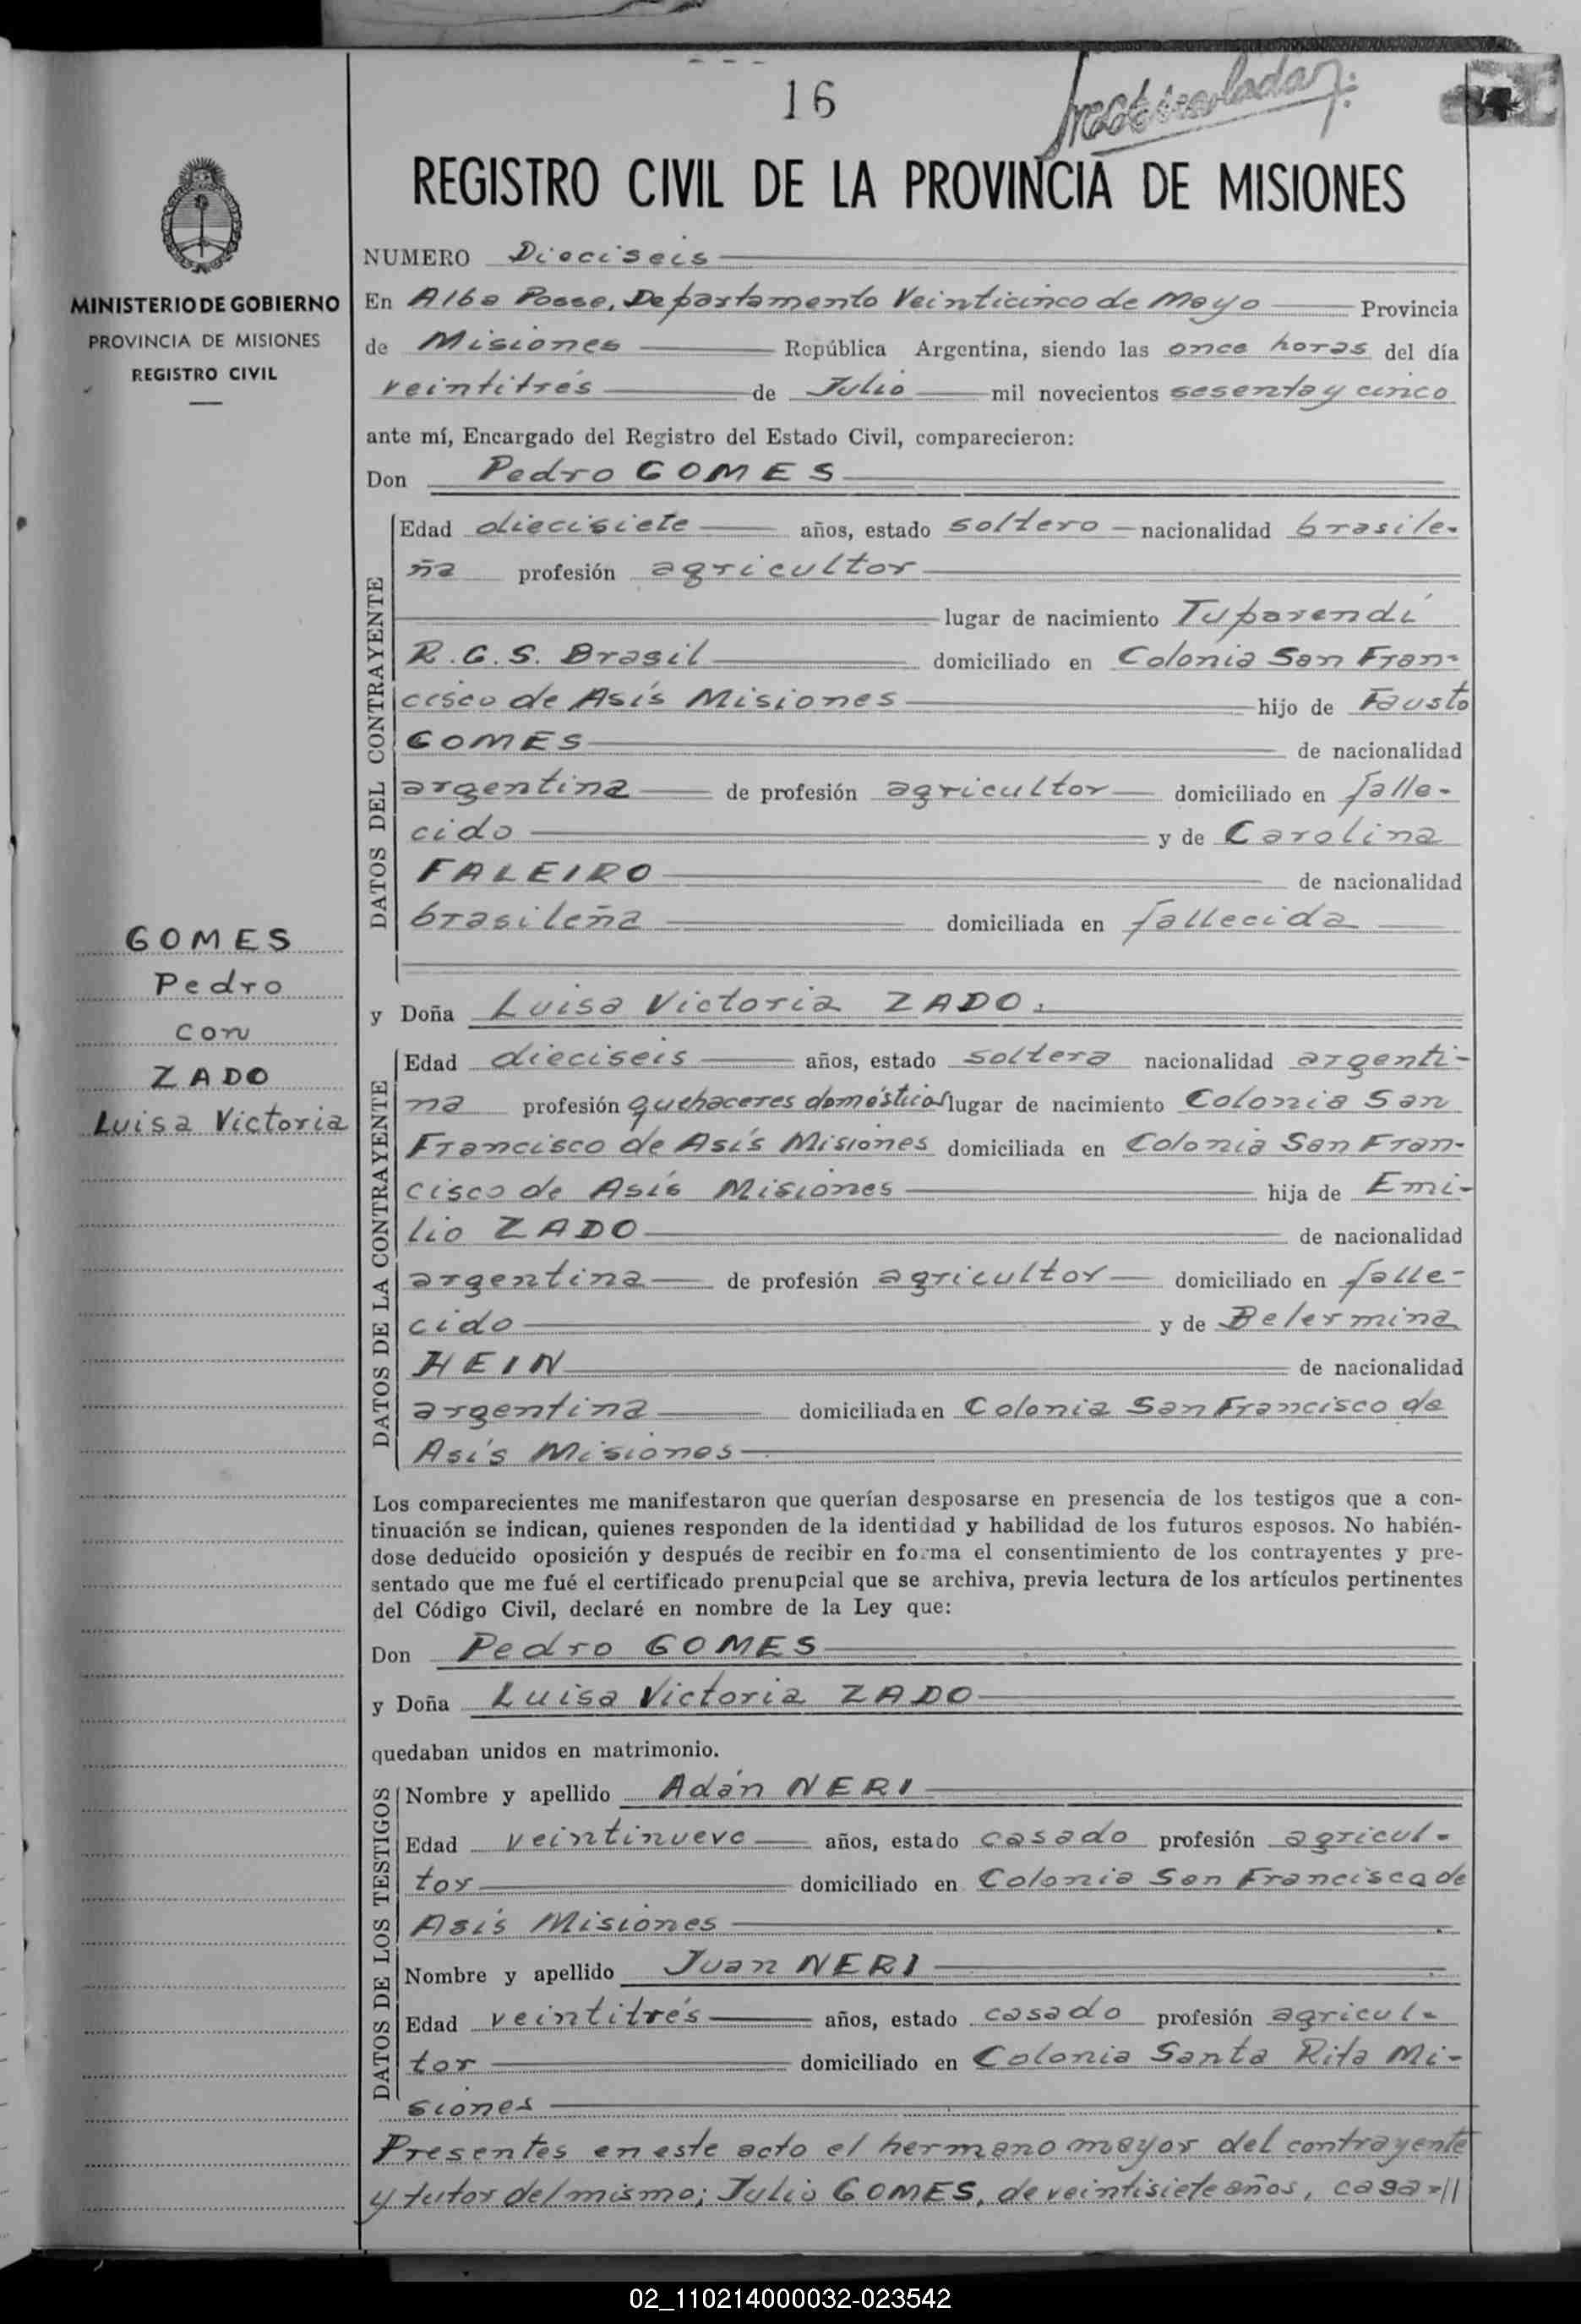 16
REGISTRO CIVIL DE LA PROVINCIA DE MISIONES
MINISTERIO DE GOBIERNO
PROVINCIA DE MISIONES
REGISTRO CIVIL
NUMERO Dieciseis
En Alba Posse, Departamento Veinticinco de Mayo Provincia
de Misiones República Argentina, siendo las once horas del día
veintitrés de Julio mil novecientos sesenta y cinco
ante mí, Encargado del Registro del Estado Civil, comparecieron:
Don Pedro GOMES
DATOS DEL CONTRAYENTE
Edad diecisiete años, estado soltero nacionalidad brasile-
ña profesión agricultor
lugar de nacimiento Tuparendí
R.G.S. Brasil domiciliado en Colonia San Fran-
cisco de Asís Misiones hijo de Fausto
GOMES de nacionalidad
argentina de profesión agricultor domiciliado en falle-
cido y de Carolina
FALEIRO de nacionalidad
brasileña domiciliada en fallecida
GOMES
Pedro
con
ZADO
Luisa Victoria
y Doña Luisa Victoria ZADO.
DATOS DE LA CONTRAYENTE
Edad dieciseis años, estado soltera nacionalidad argenti-
na profesión quehaceres domésticos lugar de nacimiento Colonia San
Francisco de Asís Misiones domiciliada en Colonia San Fran-
cisco de Asís Misiones hija de Emi-
lio ZADO de nacionalidad
argentina de profesión agricultor domiciliado en falle-
cido y de Belermina
HEIN de nacionalidad
argentina domiciliada en Colonia San Francisco de
Asís Misiones
Los comparecientes me manifestaron que querían desposarse en presencia de los testigos que a con-
tinuación se indican, quienes responden de la identidad y habilidad de los futuros esposos. No habién-
dose deducido oposición y después de recibir en forma el consentimiento de los contrayentes y pre-
sentado que me fué el certificado prenupcial que se archiva, previa lectura de los artículos pertinentes
del Código Civil, declaré en nombre de la Ley que:
Don Pedro GOMES
y Doña Luisa Victoria ZADO
quedaban unidos en matrimonio.
DATOS DE LOS TESTIGOS
Nombre y apellido Adán NERI
Edad veintinueve años, estado casado profesión agricul-
tor domiciliado en Colonia San Francisco de
Asís Misiones
Nombre y apellido Juan NERI
Edad veintitrés años, estado casado profesión agricul-
tor domiciliado en Colonia Santa Rita Mi-
siones
Presentes en este acto el hermano mayor del contrayente
y tutor del mismo; Julio GOMES, de veintisiete años, casa-//
02_110214000032-023542